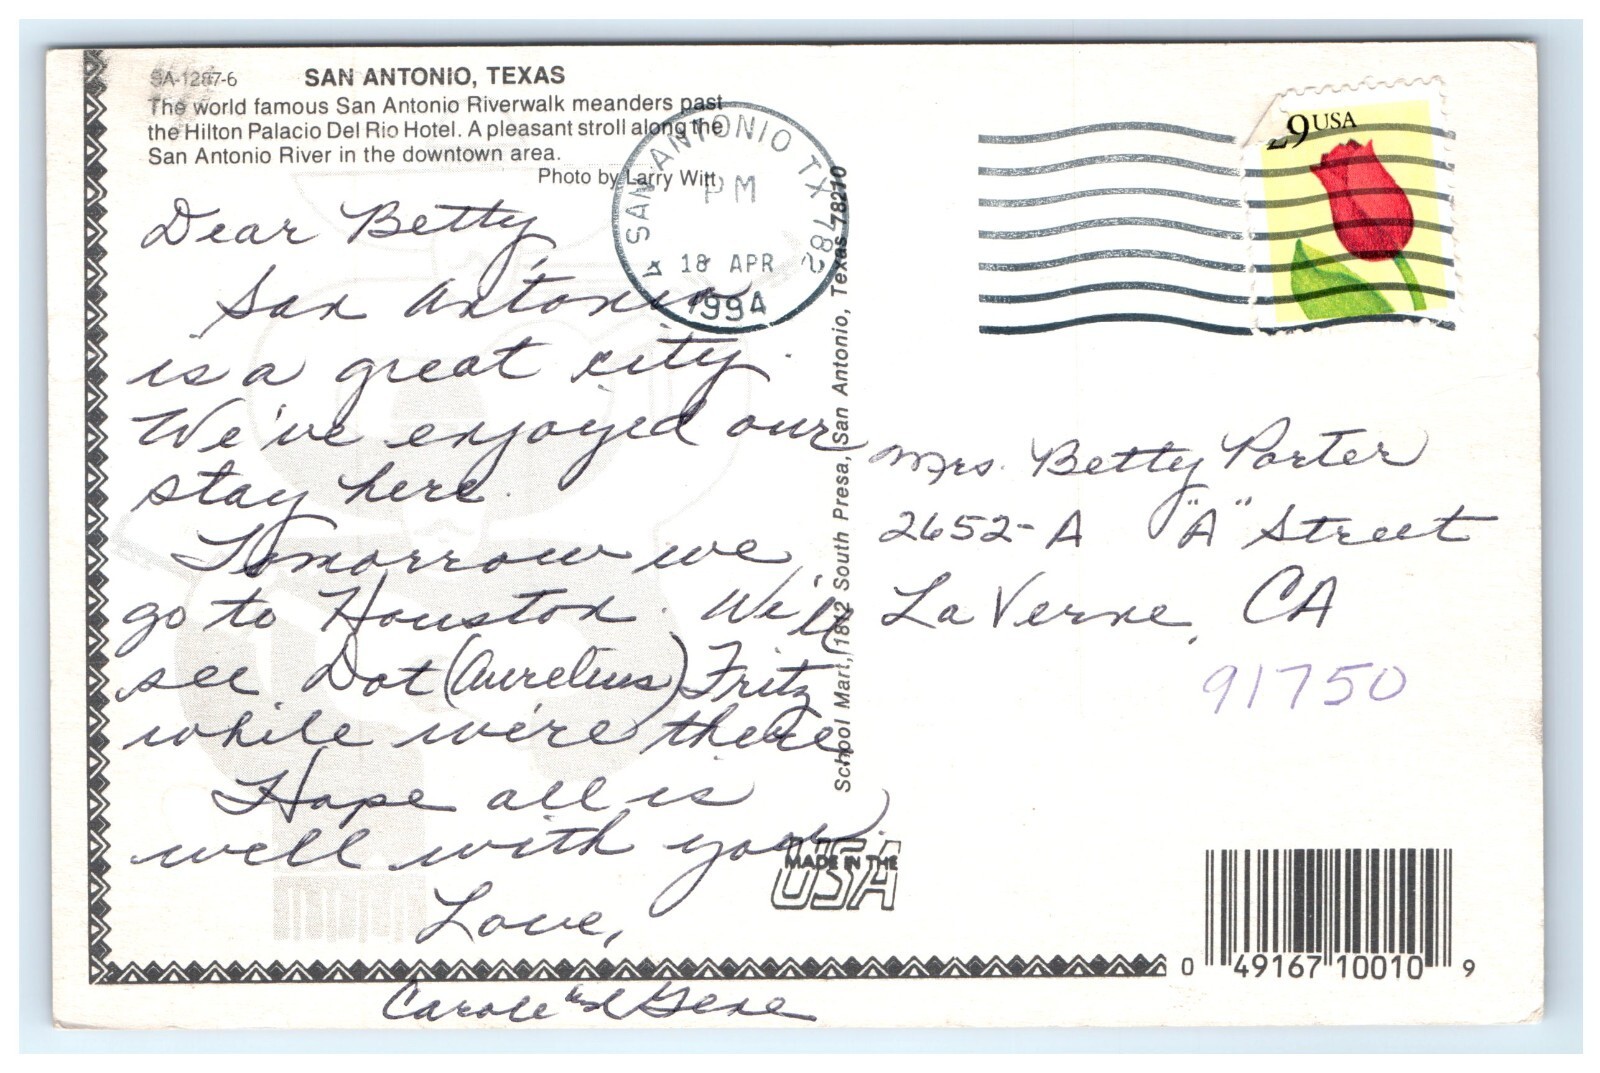 SA-1287-6 SAN ANTONIO, TEXAS
The world famous San Antonio Riverwalk meanders past
the Hilton Palacio Del Rio Hotel. A pleasant stroll along the
San Antonio River in the downtown area.
Photo by Larry Witt
Dear Betty,
San Antonio
is a great city.
We've enjoyed our
stay here.
Tomorrow we
go to Houston. We'll
see Dot (Aurelius) Fritz
while we're there
Hope all is
well with you.
Love,
Carole and Gene
SAN ANTONIO TX 782
PM
18 APR
1994
School Mart, 1812 South Presa, San Antonio, Texas 78210
29 USA
Mrs. Betty Porter
2652-A "A" Street
La Verne, CA
91750
MADE IN THE
USA
0 49167 10010 9